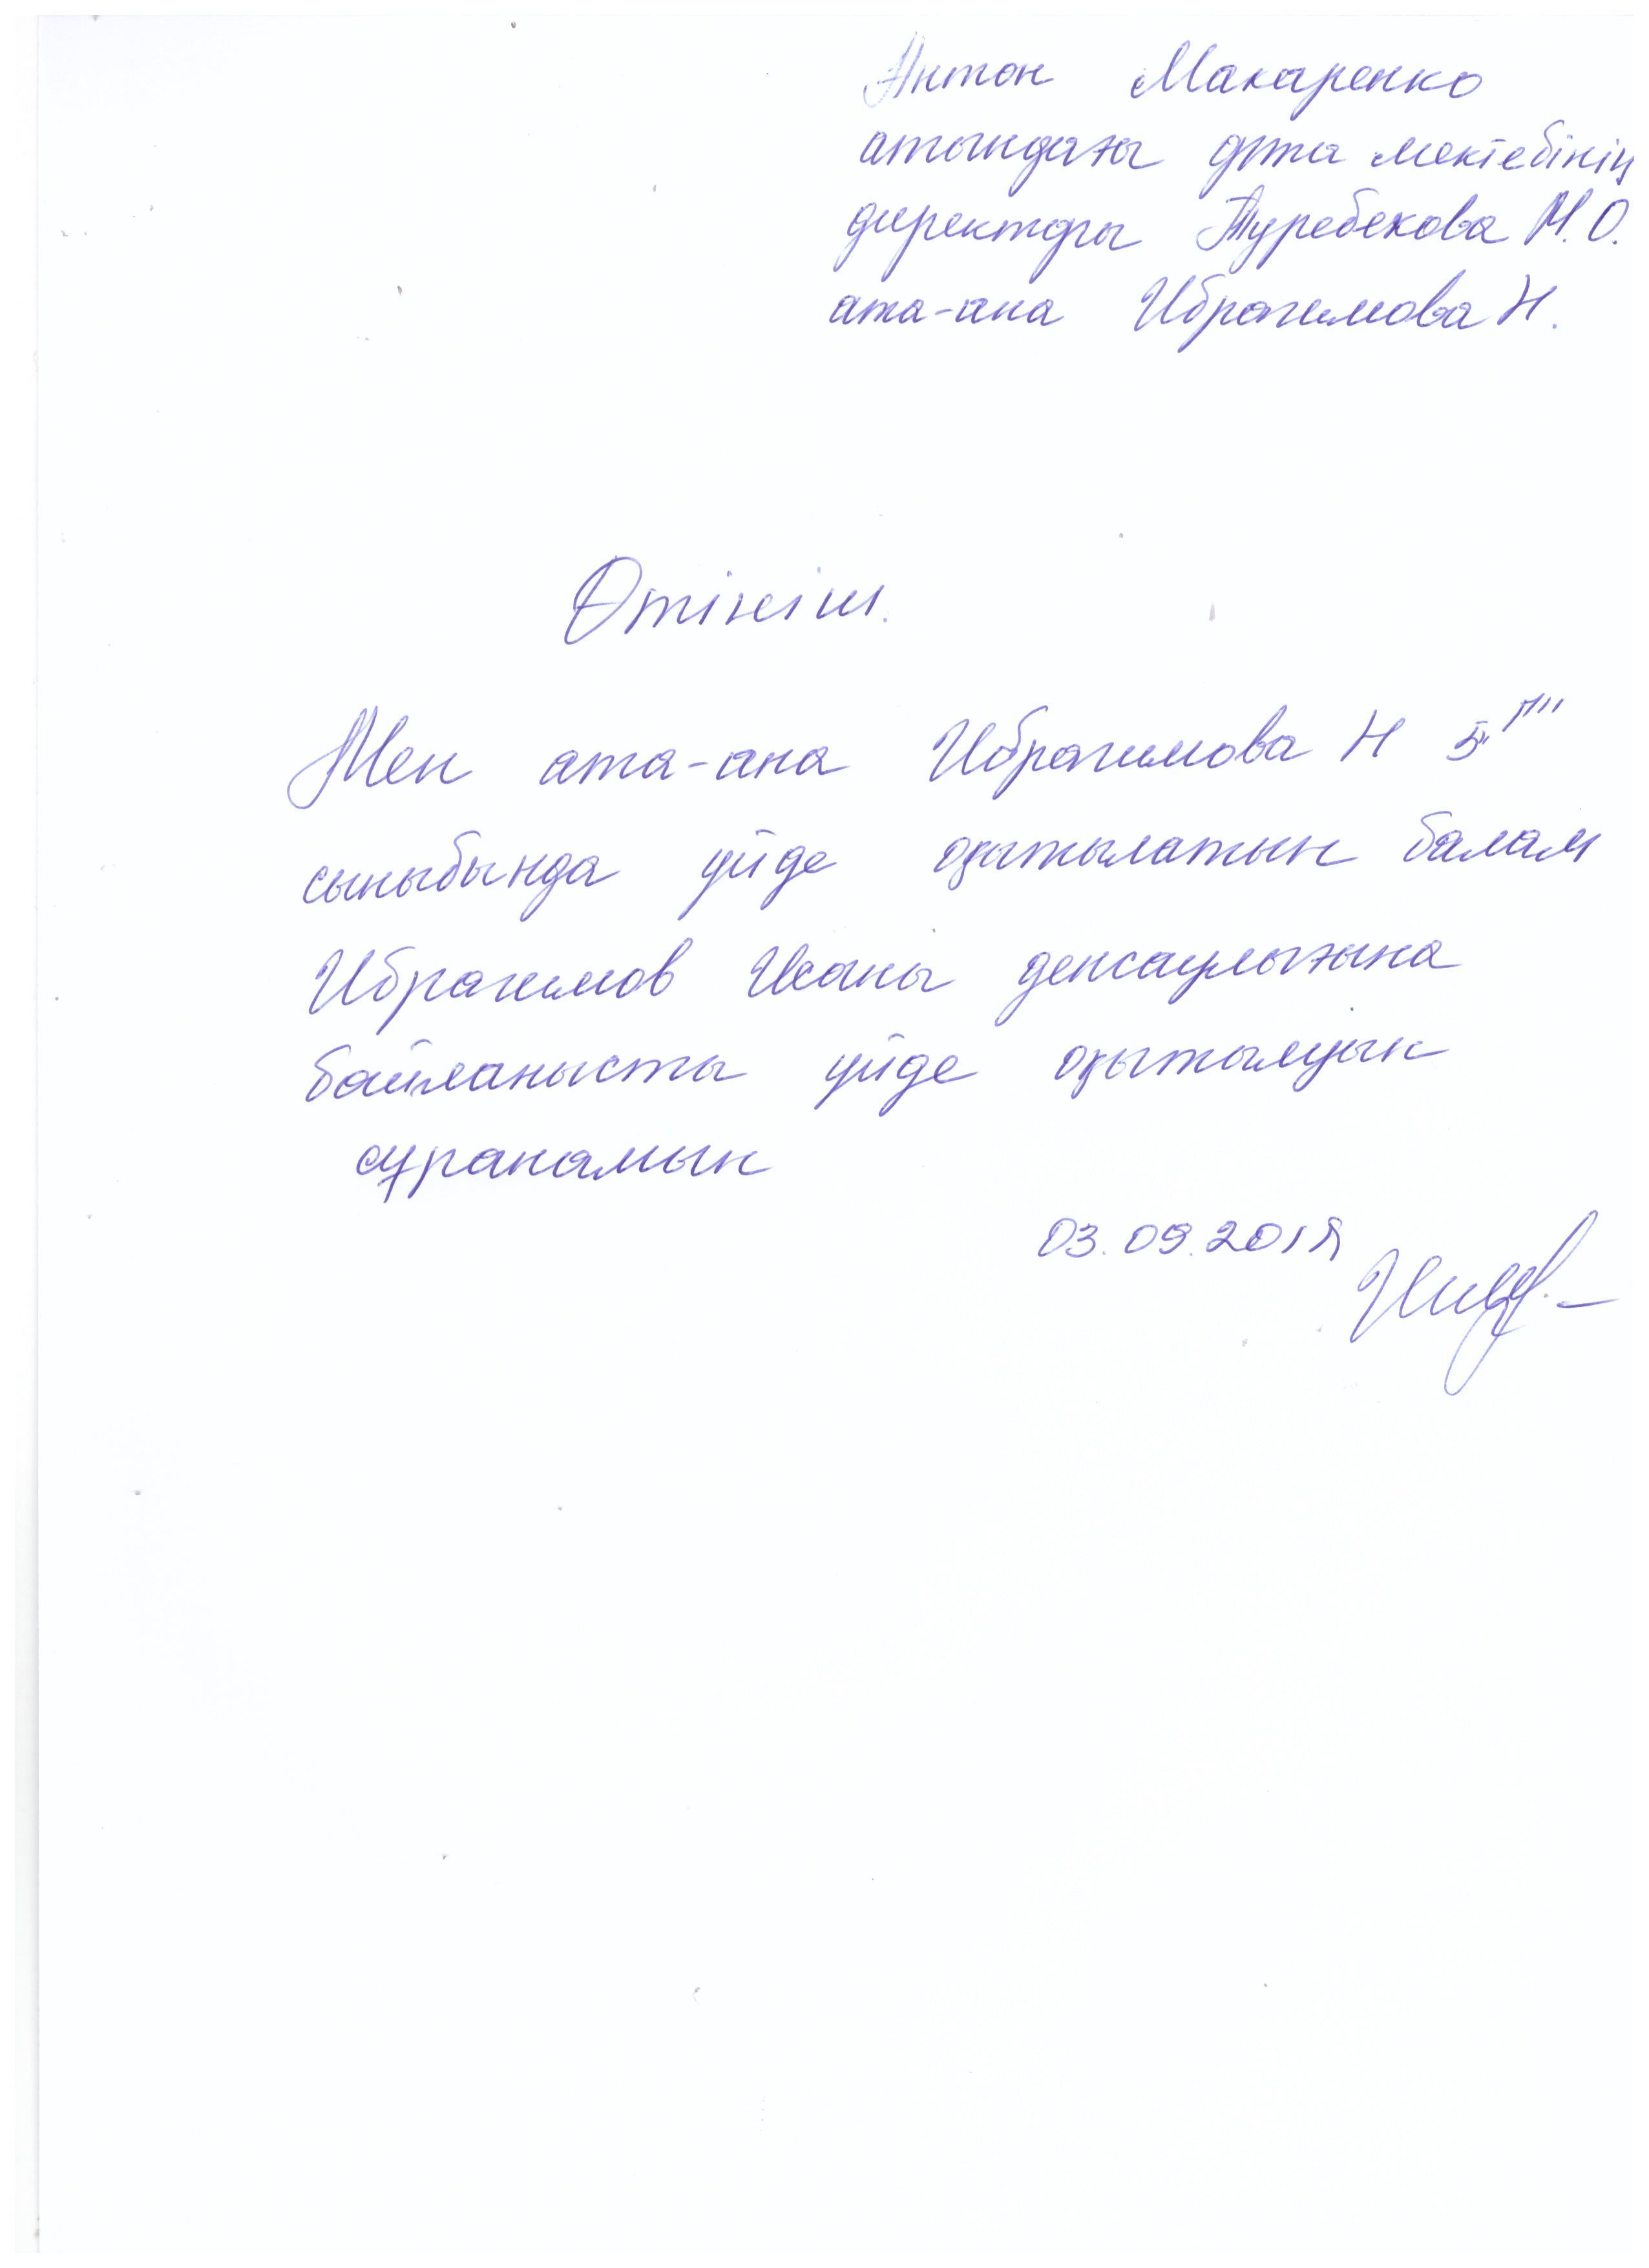 Антон Макаренко
атындағы орта мектебінің
директоры Туребекова М.О.
ата-ана Ибрагимова Н.
Өтініш.
Мен ата-ана Ибрагимова Н 5 "Г"
сыныбында үйде оқытылатын балам
Ибрагимов Исаны денсаулығына
байланысты үйде оқытылуын
сұранамын
03.09.2018